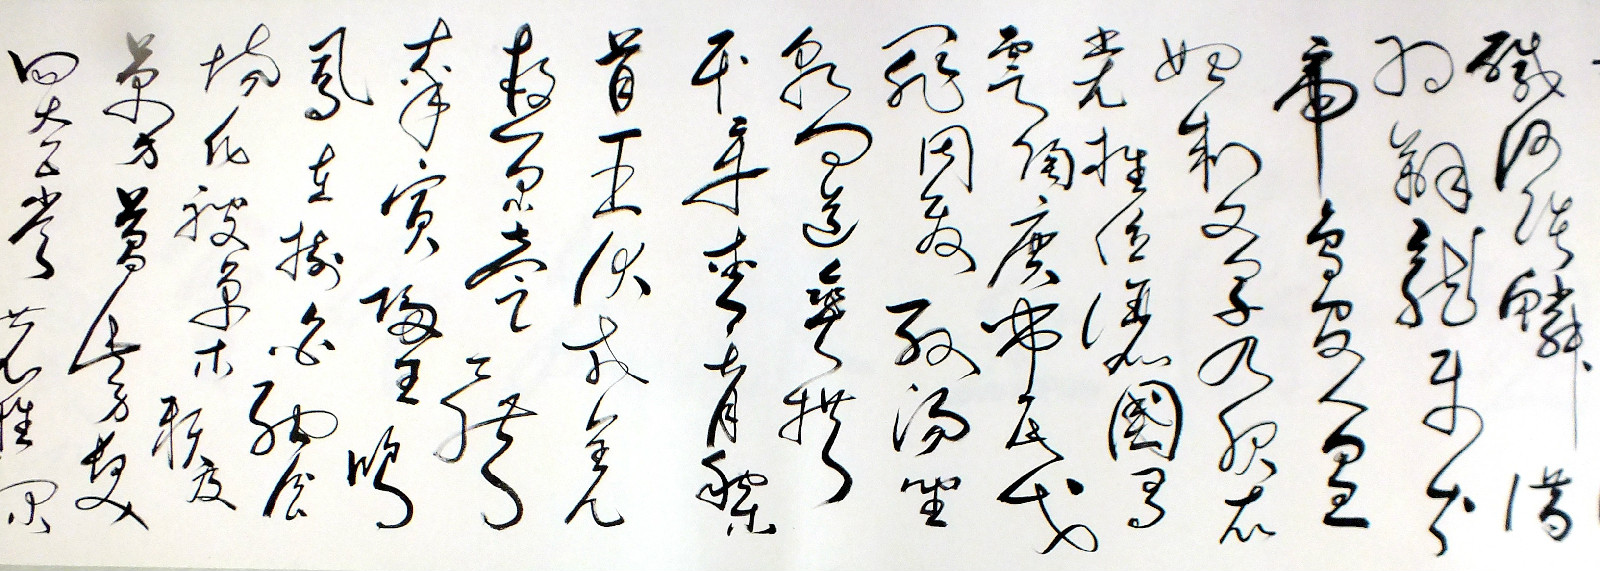 鹹河淡鱗潛
羽翔龍師火
帝鳥官人皇
始制文字乃服衣
裳推位讓國有
虞陶唐弔民伐
罪周發殷湯坐
朝問道垂拱
平章愛育黎
首臣伏戎羌
遐邇壹體
率賓歸王鳴
鳳在樹白駒食
場化被草木賴及
萬方蓋此身髮
四大五常恭惟鞠